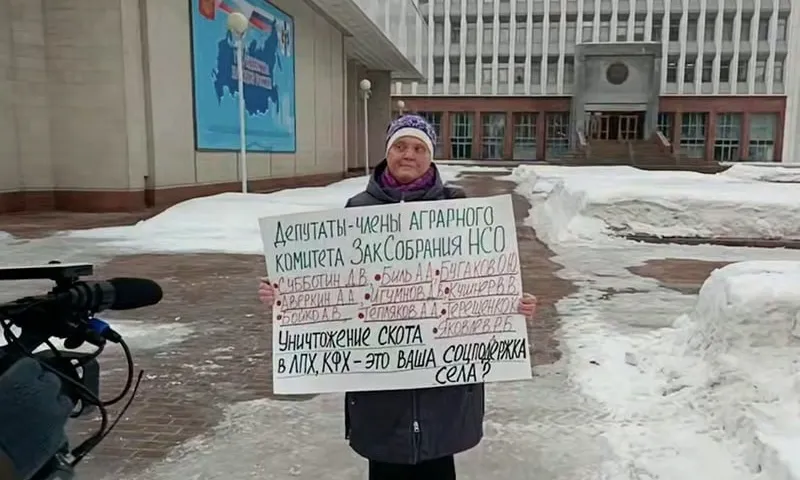 Депутаты-члены аграрного
комитета ЗакСобрания НСО
•Субботин Д.В. •Биль А.Д. •Бугаков О.Ю.
•Аверкин А.Д. •Игумнов •Кушнер В.В.
•Бойко А.В. •Тепляков А.Д. •Терещенко
•Яковлев Р.Б.
Уничтожение скота
в ЛПХ, КФХ - это ваша соцподержка
села?